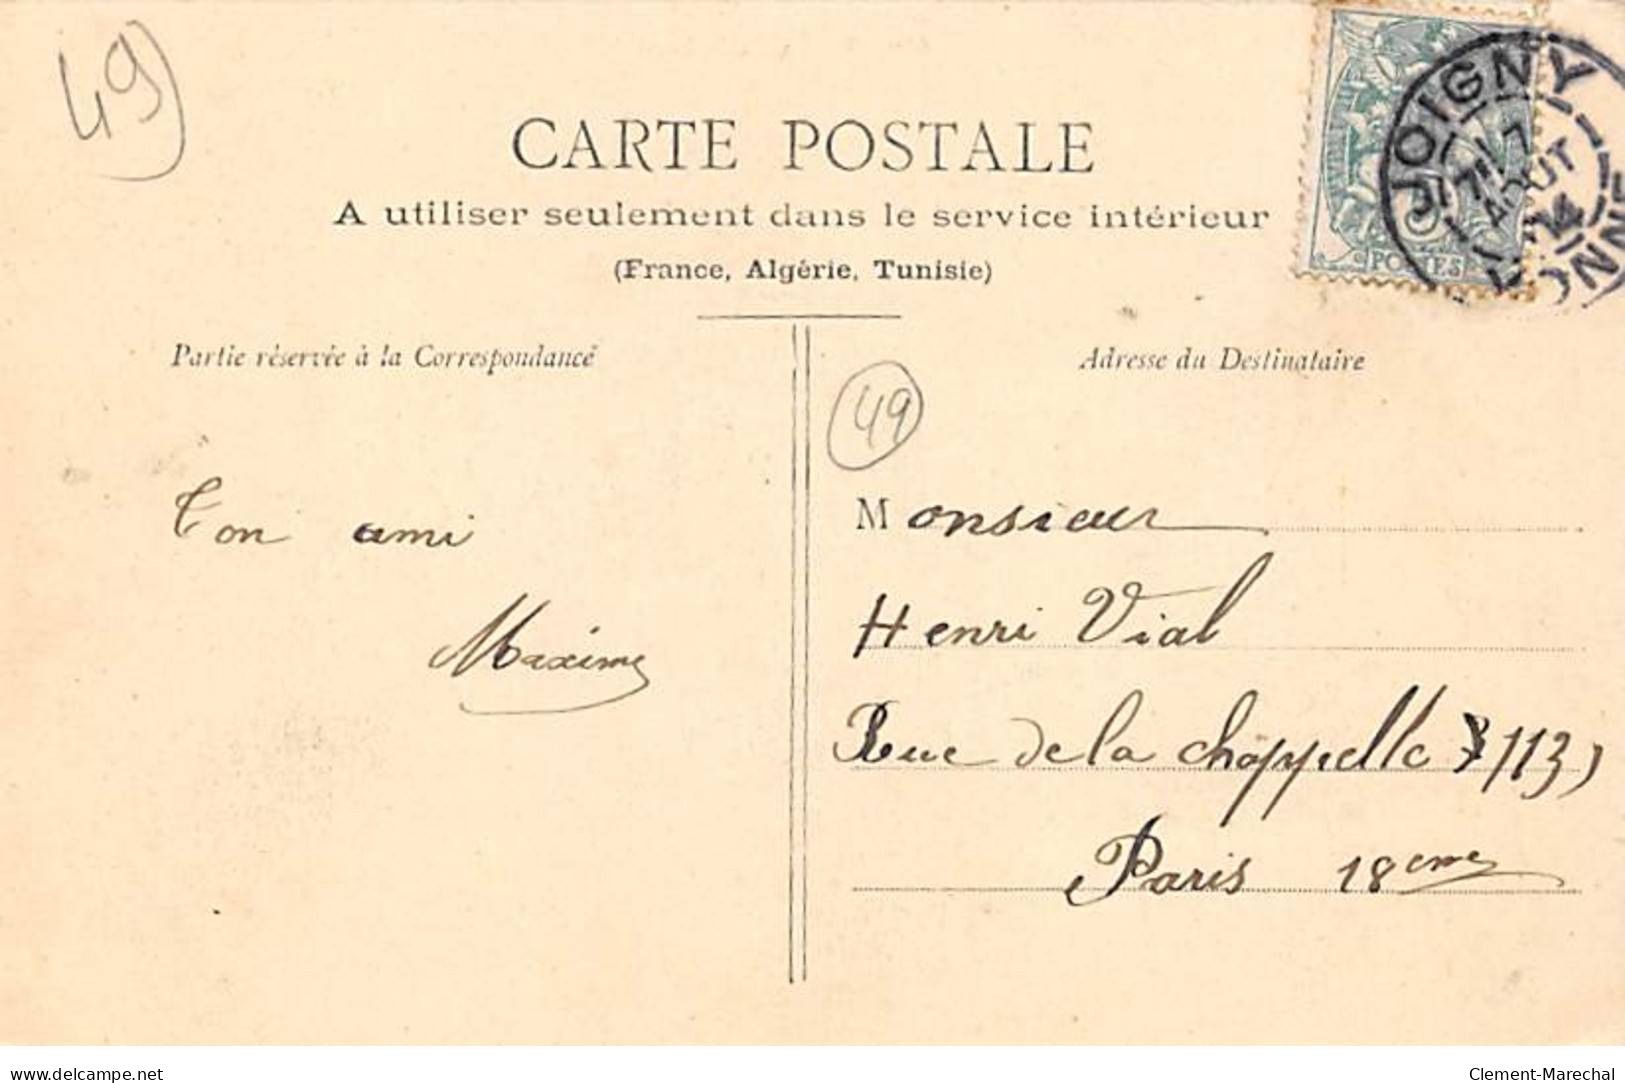 49
CARTE POSTALE
A utiliser seulement dans le service intérieur
(France, Algérie, Tunisie)
JOIGNY
AOUT
YONNE
POSTES
Partie réservée à la Correspondance
Adresse du Destinataire
49
Ton ami
Maxime
Monsieur
Henri Vial
Rue de la chappelle 113,
Paris 18eme
delcampe.net
Clement-Marechal